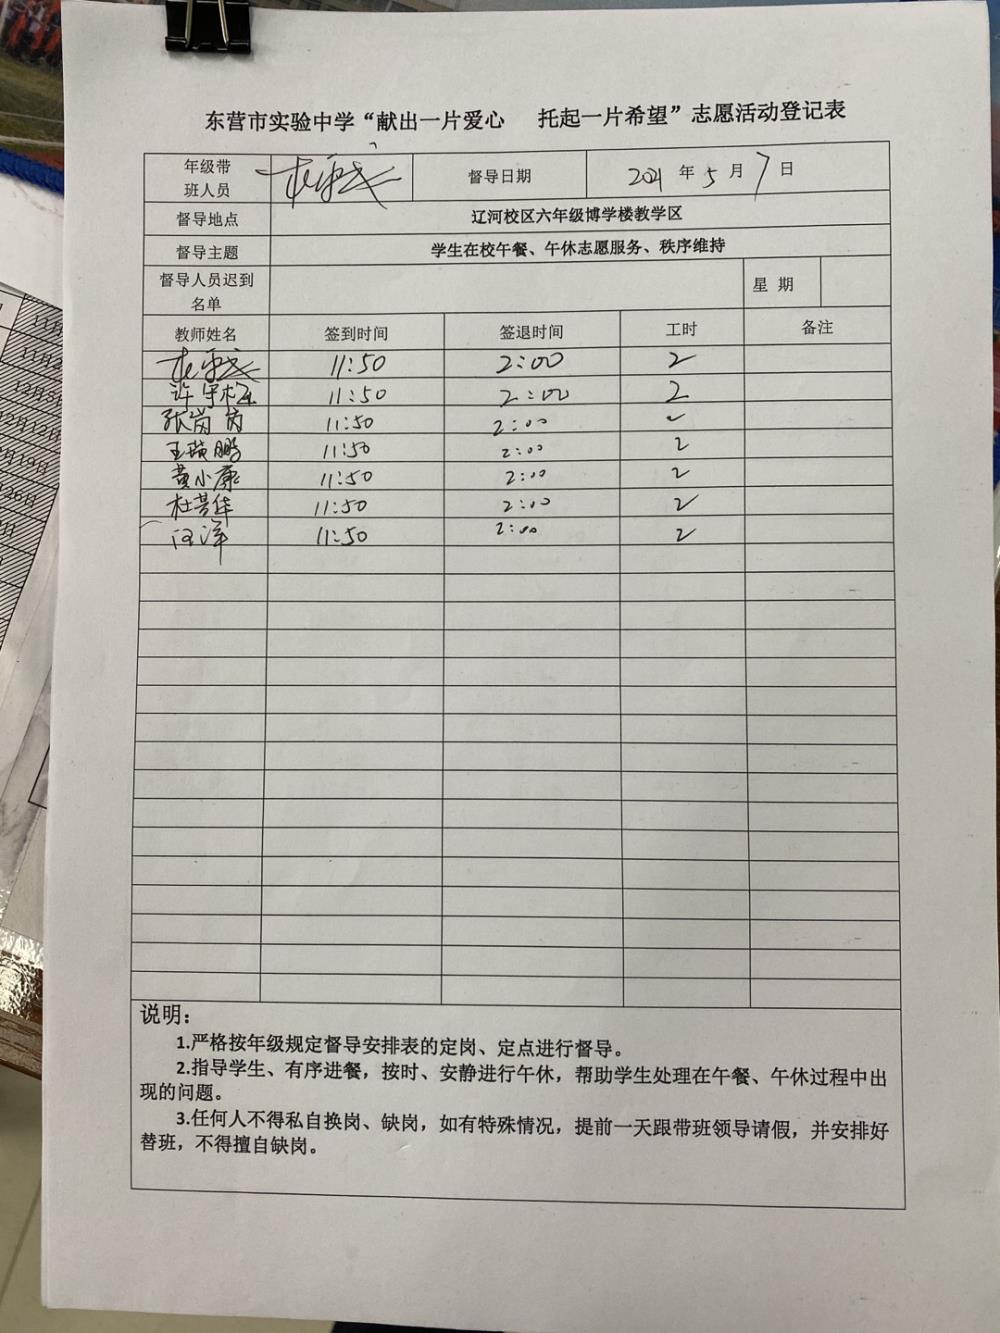 东营市实验中学“献出一片爱心 托起一片希望”志愿活动登记表
年级带班人员 督导日期 2021年5月7日
督导地点 辽河校区六年级博学楼教学区
督导主题 学生在校午餐、午休志愿服务、秩序维持
督导人员迟到名单 星 期
教师姓名 签到时间 签退时间 工时 备注
11:50 2:00 2
许 11:50 2:00 2
张岗岗 11:50 2:00 2
王瑞鹏 11:50 2:00 2
黄小康 11:50 2:00 2
杜芳华 11:50 2:00 2
汪洋 11:50 2:00 2
说明：
1.严格按年级规定督导安排表的定岗、定点进行督导。
2.指导学生、有序进餐，按时、安静进行午休，帮助学生处理在午餐、午休过程中出
现的问题。
3.任何人不得私自换岗、缺岗，如有特殊情况，提前一天跟带班领导请假，并安排好
替班，不得擅自缺岗。